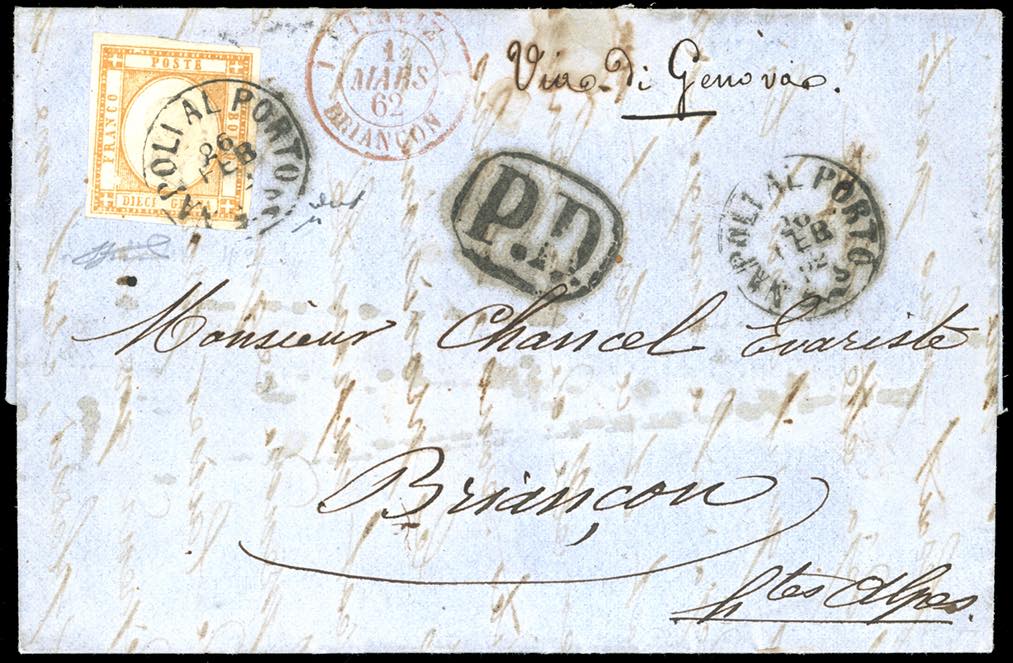 POSTE
FRANCO
BOLLO
DIECI
NAPOLI AL PORTO
FEB
1
MARS
62
BRIANÇON
Via di Genova.
P.D.
NAPOLI AL PORTO
FEB
62
Monsieur Chancel Evariste
Briançon
htes Alpes.